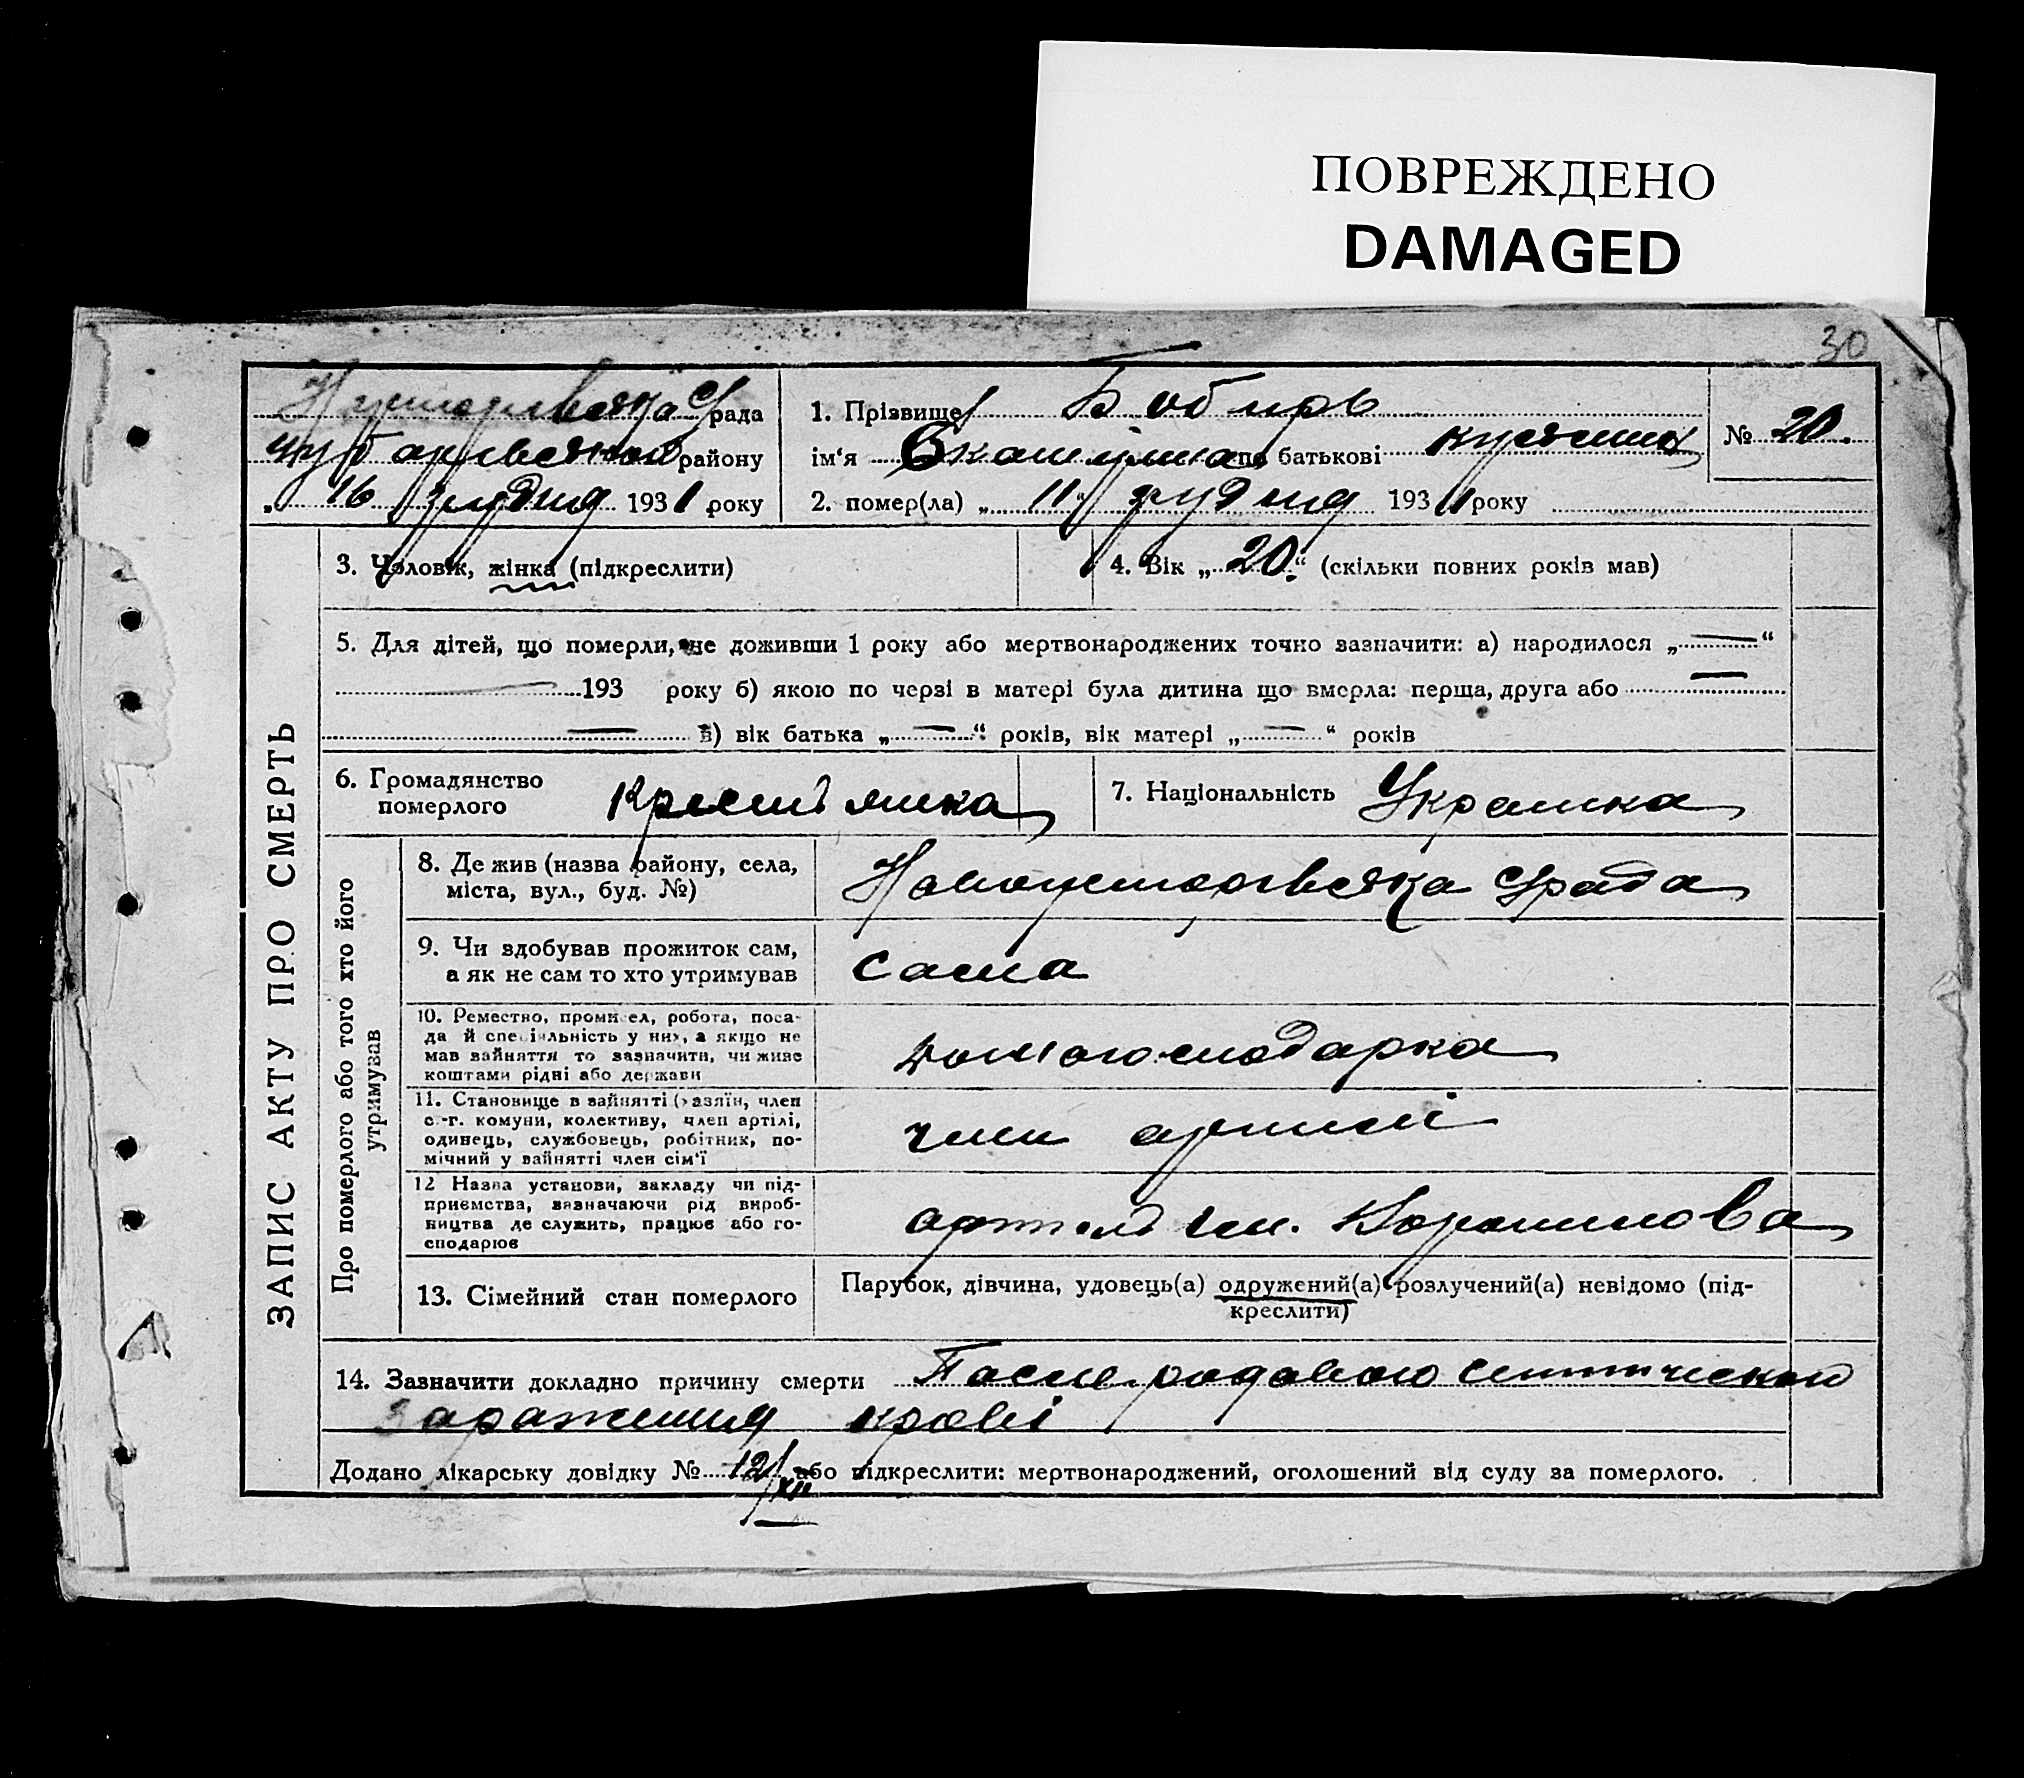 ПОВРЕЖДЕНО
DAMAGED
30
рада
району
„ 16 грудня 1931 року
1. Прізвище Бобирь
ім‘я по батькові
№ 20.
2. помер(ла) „ 11“ грудня 1931 року
ЗАПИС АКТУ ПРО СМЕРТЬ
3. Чоловік, жінка (підкреслити)
4. Вік „20.“ (скільки повних років мав)
5. Для дітей, що померли, не доживши 1 року або мертвонароджених точно зазначити: а) народилося „—“
— 193 року б) якою по черзі в матері була дитина що вмерла: перша, друга або —
— в) вік батька „—“ років, вік матері „—“ років
6. Громадянство
померлого
7. Національність Украинка
Про померлого або того хто його
утримував
8. Де жив (назва району, села,
міста, вул., буд. №)
срада
9. Чи здобував прожиток сам,
а як не сам то хто утримував
сама
10. Ремество, промисел, робота, поса-
да й спеціяльність у них, а якщо не
мав зайняття то зазначити, чи живе
коштами рідні або держави
домогосподарка
11. Становище в зайнятті (хазяїн, член
с.-г. комуни, колективу, член артілі,
одинець, службовець, робітник, по-
мічний у зайнятті член сім‘ї
член артилі
12 Назва установи, закладу чи під-
приємства, зазначаючи рід вироб-
ництва де служить, працює або го-
сподарює
артель им.
13. Сімейний стан померлого
Парубок, дівчина, удовець(а) одружений(а) розлучений(а) невідомо (під-
креслити)
14. Зазначити докладно причину смерти После родового септического
заражения крові
Додано лікарську довідку № 12/XII або підкреслити: мертвонароджений, оголошений від суду за померлого.